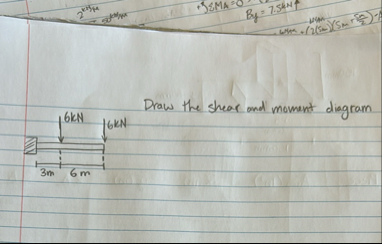 ΣMA=0
By = 7.5kN
Draw the shear and moment diagram
6kN
6kN
3m 6m